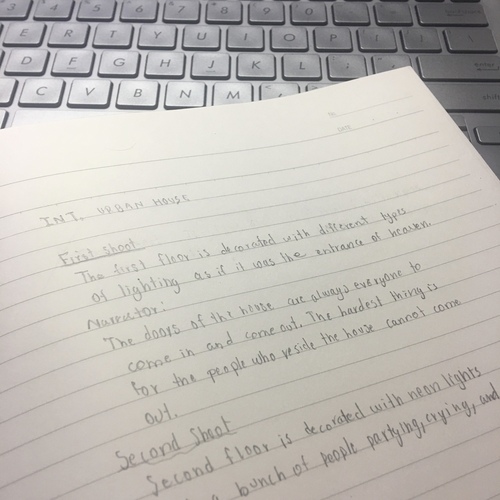 7 8 9 0
E R T Y U I O P
D F G H J K L
C V B N M
DATE:
INT. URBAN HOUSE
First shoot
The first floor is decorated with different types
of lighting as if it was the entrance of heaven.
Narrator:
The doors of the house are always everyone to
come in and come out. The hardest thing is
for the people who reside the house cannot come
out.
Second shoot
Second floor is decorated with neon lights
bunch of people partying, crying, and